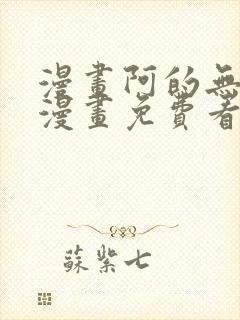 漫畫阿的無
漫畫免費看
蘇紫七